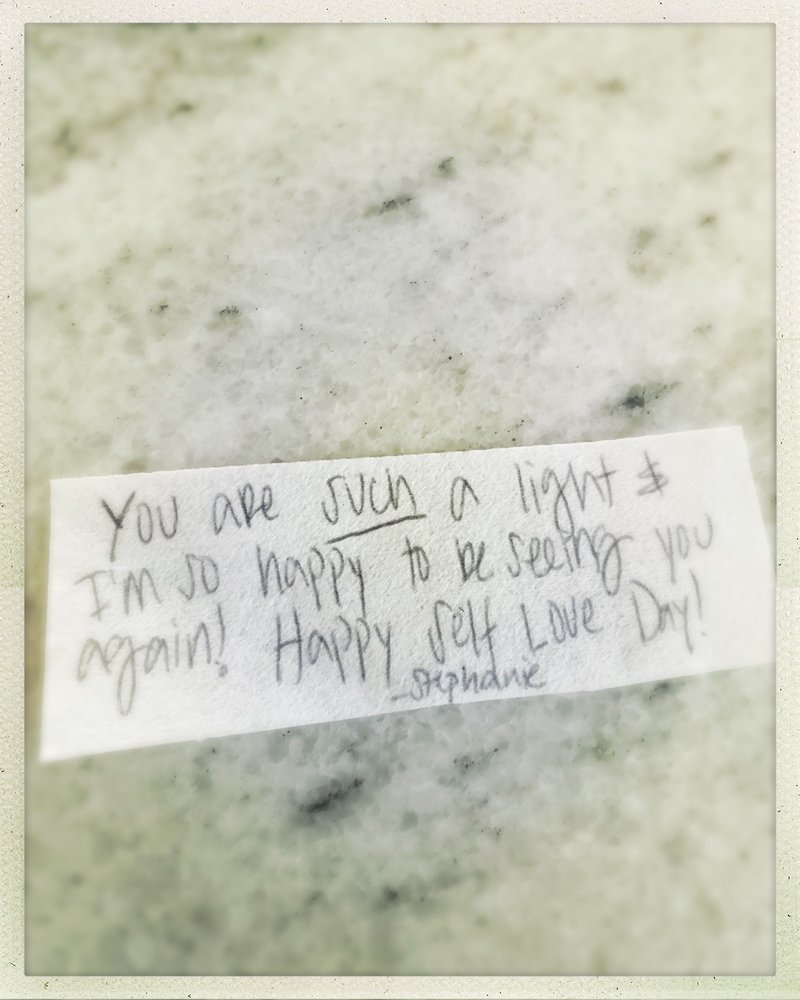 You are such a light &
I'm so happy to be seeing you
again! Happy Self Love Day!
-Stephanie